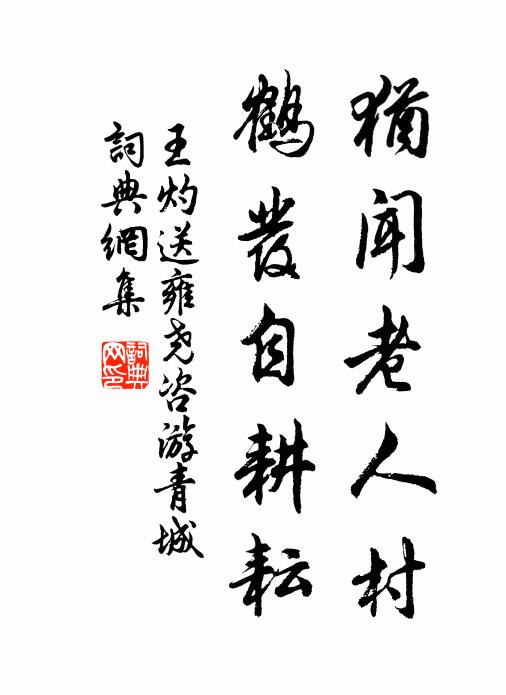 猶聞老人村
鶴發自耕耘
王灼送雍堯咨游青城
詞典網集
詞典網印